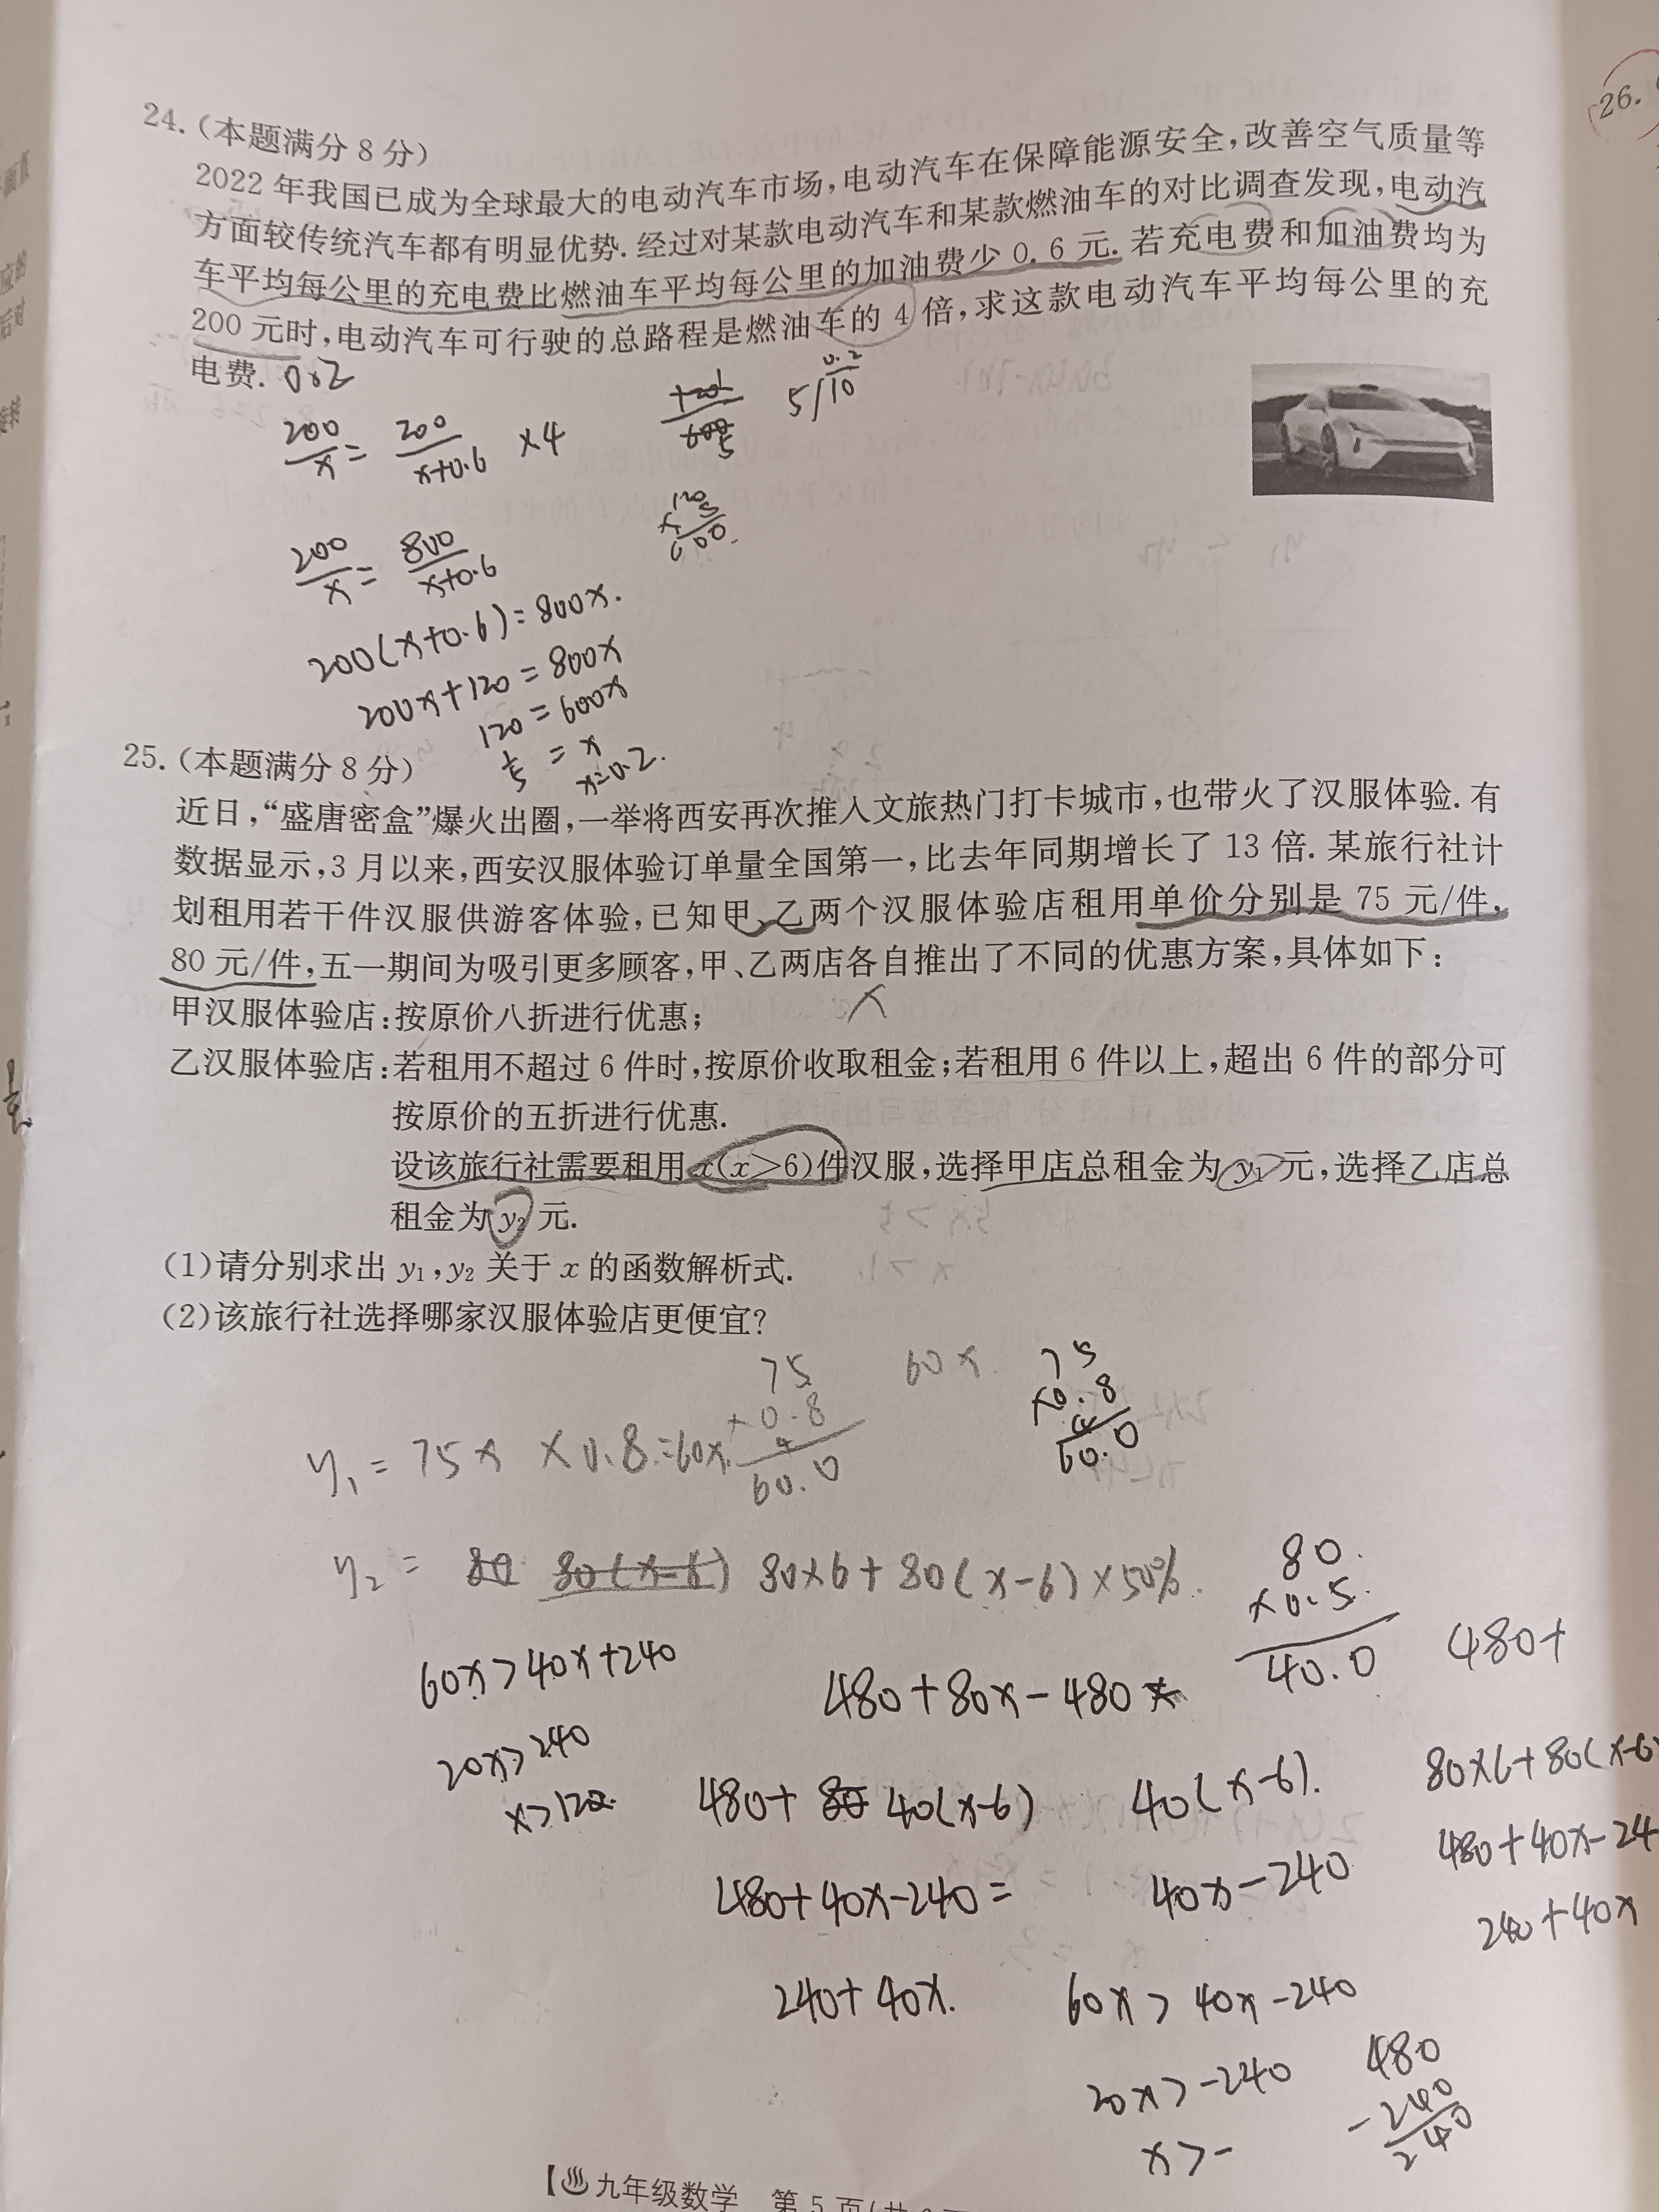 24.(本题满分8分)
2022年我国已成为全球最大的电动汽车市场,电动汽车在保障能源安全,改善空气质量等
方面较传统汽车都有明显优势.经过对某款电动汽车和某款燃油车的对比调查发现,电动汽
车平均每公里的充电费比燃油车平均每公里的加油费少0.6元.若充电费和加油费均为
200元时,电动汽车可行驶的总路程是燃油车的4倍,求这款电动汽车平均每公里的充
电费. 0.2
200/x = 200/(x+0.6) ×4
5/10 0.2
120
×5
600
200/x = 800/(x+0.6)
200(x+0.6)=800x.
200x+120=800x
120=600x
1/5 = x
x=0.2.
25.(本题满分8分)
近日,“盛唐密盒”爆火出圈,一举将西安再次推入文旅热门打卡城市,也带火了汉服体验.有
数据显示,3月以来,西安汉服体验订单量全国第一,比去年同期增长了13倍.某旅行社计
划租用若干件汉服供游客体验,已知甲、乙两个汉服体验店租用单价分别是75元/件,
80元/件,五一期间为吸引更多顾客,甲、乙两店各自推出了不同的优惠方案,具体如下:
甲汉服体验店:按原价八折进行优惠;
乙汉服体验店:若租用不超过6件时,按原价收取租金;若租用6件以上,超出6件的部分可
按原价的五折进行优惠.
设该旅行社需要租用x(x>6)件汉服,选择甲店总租金为y₁元,选择乙店总
租金为y₂元.
(1)请分别求出y₁,y₂关于x的函数解析式.
(2)该旅行社选择哪家汉服体验店更便宜?
75
×0.8
4
60.0
60x.
75
×0.8
4
60.0
y₁=75x×0.8=60x.
y₂= 80 80(x-6) 80×6+80(x-6)×50%.
80.
×0.5.
40.0
480+
60x>40x+240
480+80x-480
20x>240
x>12
480+ 40(x-6)
40(x-6).
80×6+80(x-6
480+40x-240=
40x-240
480+40x-24
240+40x
240+40x.
60x>40x-240
20x>-240
x>-
480
-240
240
九年级数学 第5页(共
26.